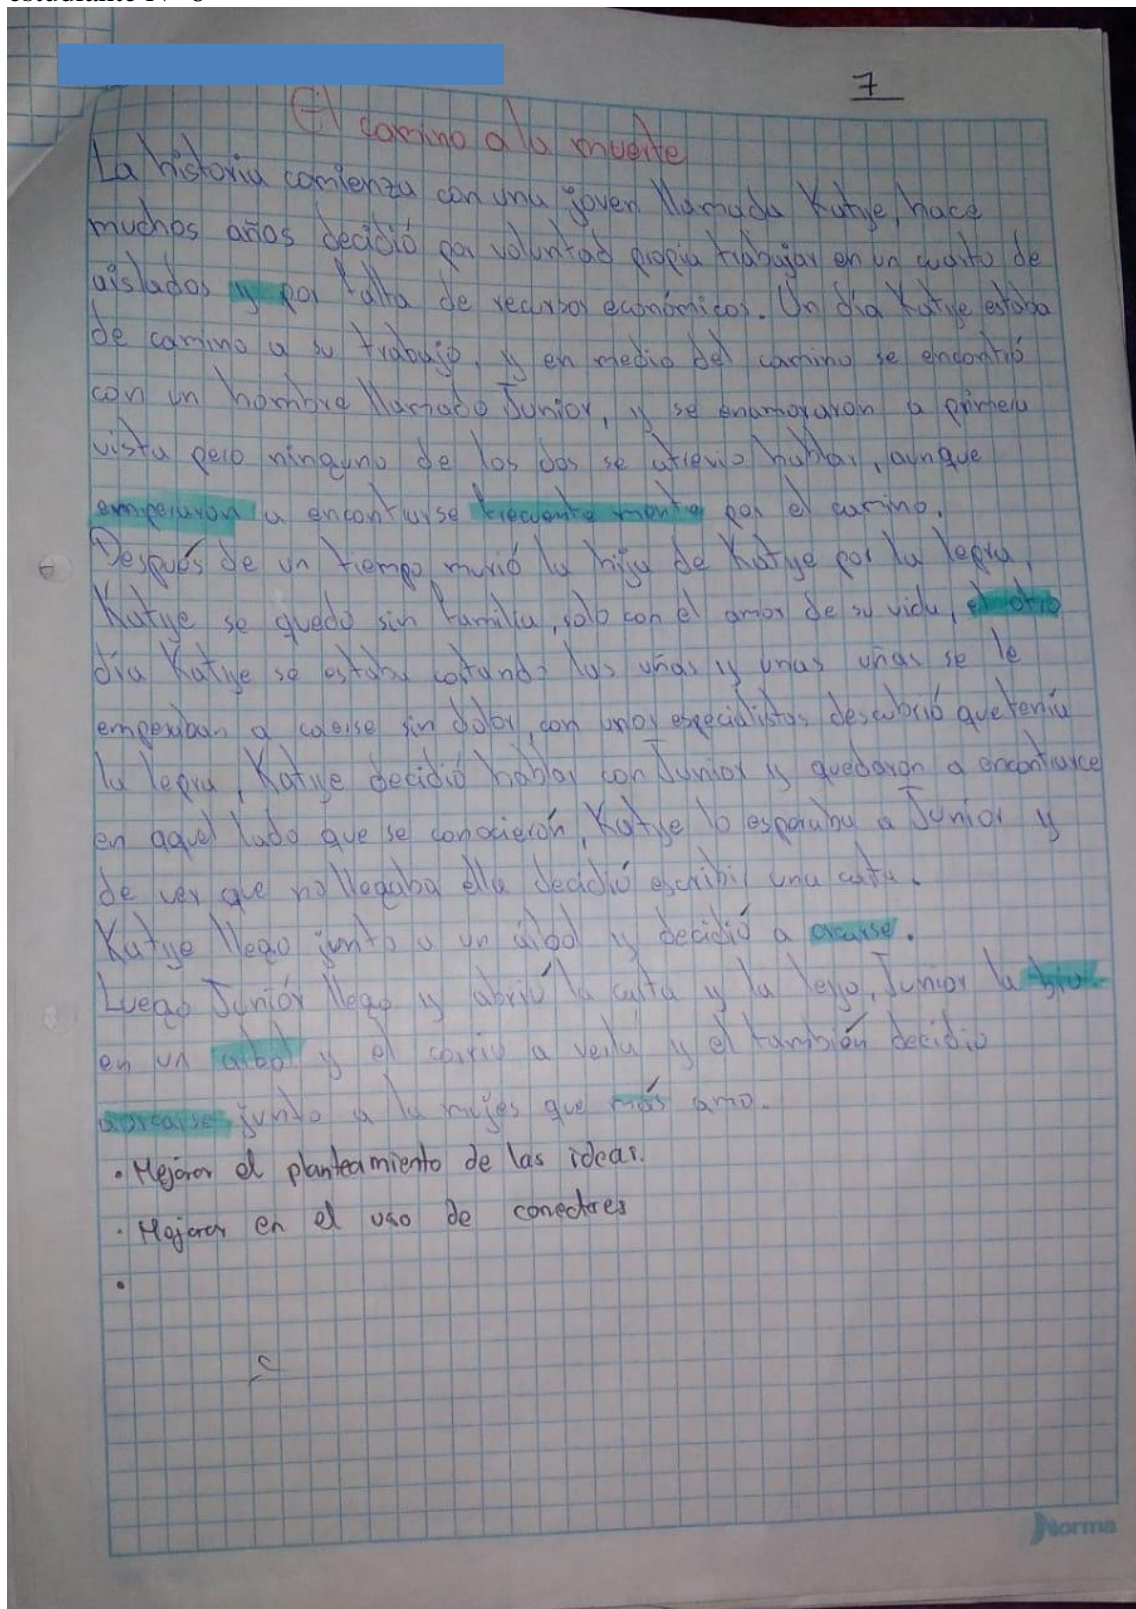 estudiante N° 6
7
El camino a la muerte
La historia comienza con una joven llamada Katye, hace
muchos años decidió por voluntad propia trabajar en un cuarto de
aislados y por falta de recursos económicos. Un día Katye estaba
de camino a su trabajo, y en medio del camino se encontró
con un hombre llamado Junior, y se enamoraron a primera
vista pero ninguno de los dos se atrevio hablar, aunque
emperaron a encontrarse frecuente mente por el camino.
Después de un tiempo murió la hija de Katye por la lepra,
Katye se quedo sin familia, solo con el amor de su vida, el otro
día Katye se estaba cortando las uñas y unas uñas se le
emperaban a caerse sin dolor, con unos especialistas descubrió que tenía
la lepra, Katye decidió hablar con Junior y quedaron a encontrarce
en aquel lado que se conocierón, Katye lo esperaba a Junior y
de ver que no llegaba ella decidió escribir una carta.
Katye llego junto a un árbol y decidió a
Luego Juniór llego y abrió la carta y la leyo, Junior la bio
en un arbol y el corrio a verla y el también decidio
aorcarse junto a la mujer que más amo.
• Mejorar el planteamiento de las ideas.
• Mejorar en el uso de conectores
•
Norma